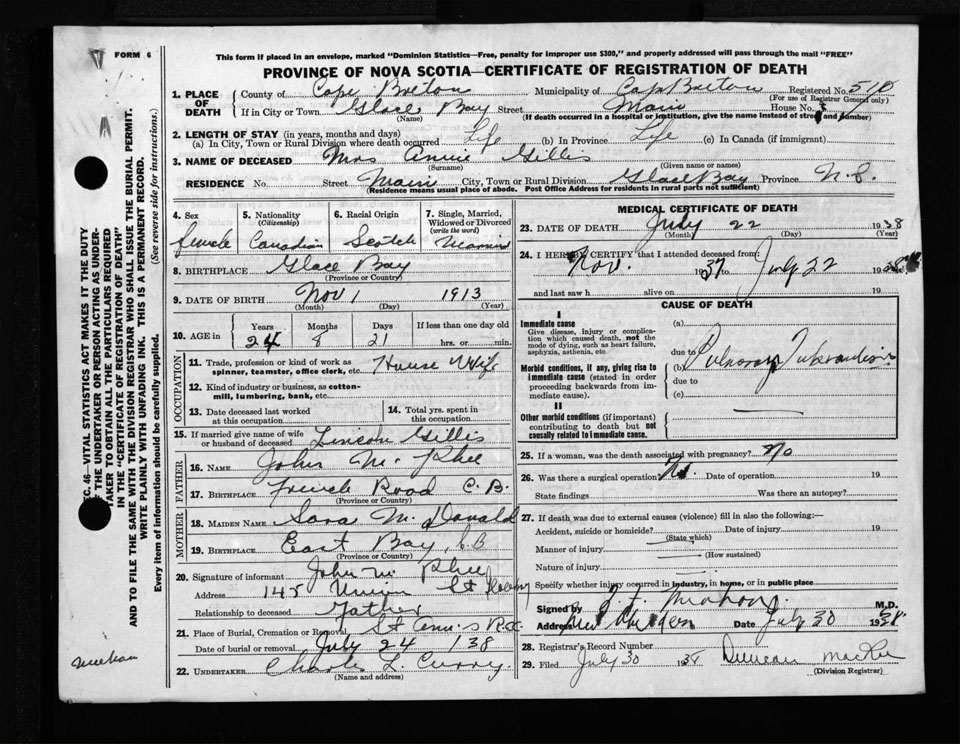 FORM 6
This form if placed in an envelope, marked "Dominion Statistics—Free, penalty for improper use $300," and properly addressed will pass through the mail "FREE"
PROVINCE OF NOVA SCOTIA—CERTIFICATE OF REGISTRATION OF DEATH
SEC. 46—VITAL STATISTICS ACT MAKES IT THE DUTY
OF THE UNDERTAKER OR PERSON ACTING AS UNDER-
TAKER TO OBTAIN ALL THE PARTICULARS REQUIRED
IN THE "CERTIFICATE OF REGISTRATION OF DEATH"
AND TO FILE THE SAME WITH THE DIVISION REGISTRAR WHO SHALL ISSUE THE BURIAL PERMIT.
WRITE PLAINLY WITH UNFADING INK. THIS IS A PERMANENT RECORD.
Every item of information should be carefully supplied. (See reverse side for instructions.)
1. PLACE OF DEATH County of Cape Breton Municipality of Cape Breton Registered No. 510
(For use of Registrar General only)
If in City or Town Glace Bay Street Main House No.
(Name) (If death occurred in a hospital or institution, give the name instead of street and number)
2. LENGTH OF STAY (in years, months and days)
(a) In City, Town or Rural Division where death occurred Life (b) In Province Life (c) In Canada (if immigrant)
3. NAME OF DECEASED Mrs Annie Gillis
(Surname) (Given name or names)
RESIDENCE No. Street Main City, Town or Rural Division Glace Bay Province N.S.
(Residence means usual place of abode. Post Office Address for residents in rural parts not sufficient)
4. Sex female
5. Nationality (Citizenship) Canadian
6. Racial Origin Scotch
7. Single, Married, Widowed or Divorced (write the word) Married
8. BIRTHPLACE Glace Bay
(Province or Country)
9. DATE OF BIRTH Nov 1 1913
(Month) (Day) (Year)
10. AGE in Years 24 Months 8 Days 21 If less than one day old
hrs. or min.
OCCUPATION
11. Trade, profession or kind of work as spinner, teamster, office clerk, etc. House Wife
12. Kind of industry or business, as cotton-mill, lumbering, bank, etc.
13. Date deceased last worked at this occupation
14. Total yrs. spent in this occupation
15. If married give name of wife or husband of deceased Lincoln Gillis
FATHER
16. NAME John McPhee
17. BIRTHPLACE French Road C.B.
(Province or Country)
MOTHER
18. MAIDEN NAME Sara McDonald
19. BIRTHPLACE East Bay, C.B
(Province or Country)
20. Signature of informant John McPhee
Address 145 Union St
Relationship to deceased Father
21. Place of Burial, Cremation or Removal St Ann's R.C.
Date of burial or removal July 24 1938
22. UNDERTAKER Charles L. Curry.
(Name and address)
MEDICAL CERTIFICATE OF DEATH
23. DATE OF DEATH July 22 1938
(Month) (Day) (Year)
24. I HEREBY CERTIFY that I attended deceased from:
Nov. 1937 to July 22 1938
and last saw h alive on 19
CAUSE OF DEATH
I
Immediate cause
Give disease, injury or complication which caused death, not the mode of dying, such as heart failure, asphyxia, asthenia, etc
(a)
due to
Morbid conditions, if any, giving rise to immediate cause (stated in order proceeding backwards from immediate cause).
(b) Pulmonary Tuberculosis
due to
(c)
II
Other morbid conditions (if important) contributing to death but not causally related to immediate cause.
25. If a woman, was the death associated with pregnancy? No
26. Was there a surgical operation? No. Date of operation 19
State findings Was there an autopsy?
27. If death was due to external causes (violence) fill in also the following:—
Accident, suicide or homicide? Date of injury 19
(State which)
Manner of injury
(How sustained)
Nature of injury
Specify whether injury occurred in industry, in home, or in public place
Signed by M.D.
Address New Aberdeen Date July 30 1938
28. Registrar's Record Number
29. Filed July 30 1938 Duncan MacRae
(Division Registrar)